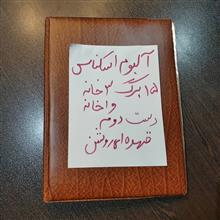 آلبوم اسکناس
۱۵ برگ ۳ خانه
و ۱ خانه
دست دوم
قهوه ای روشن